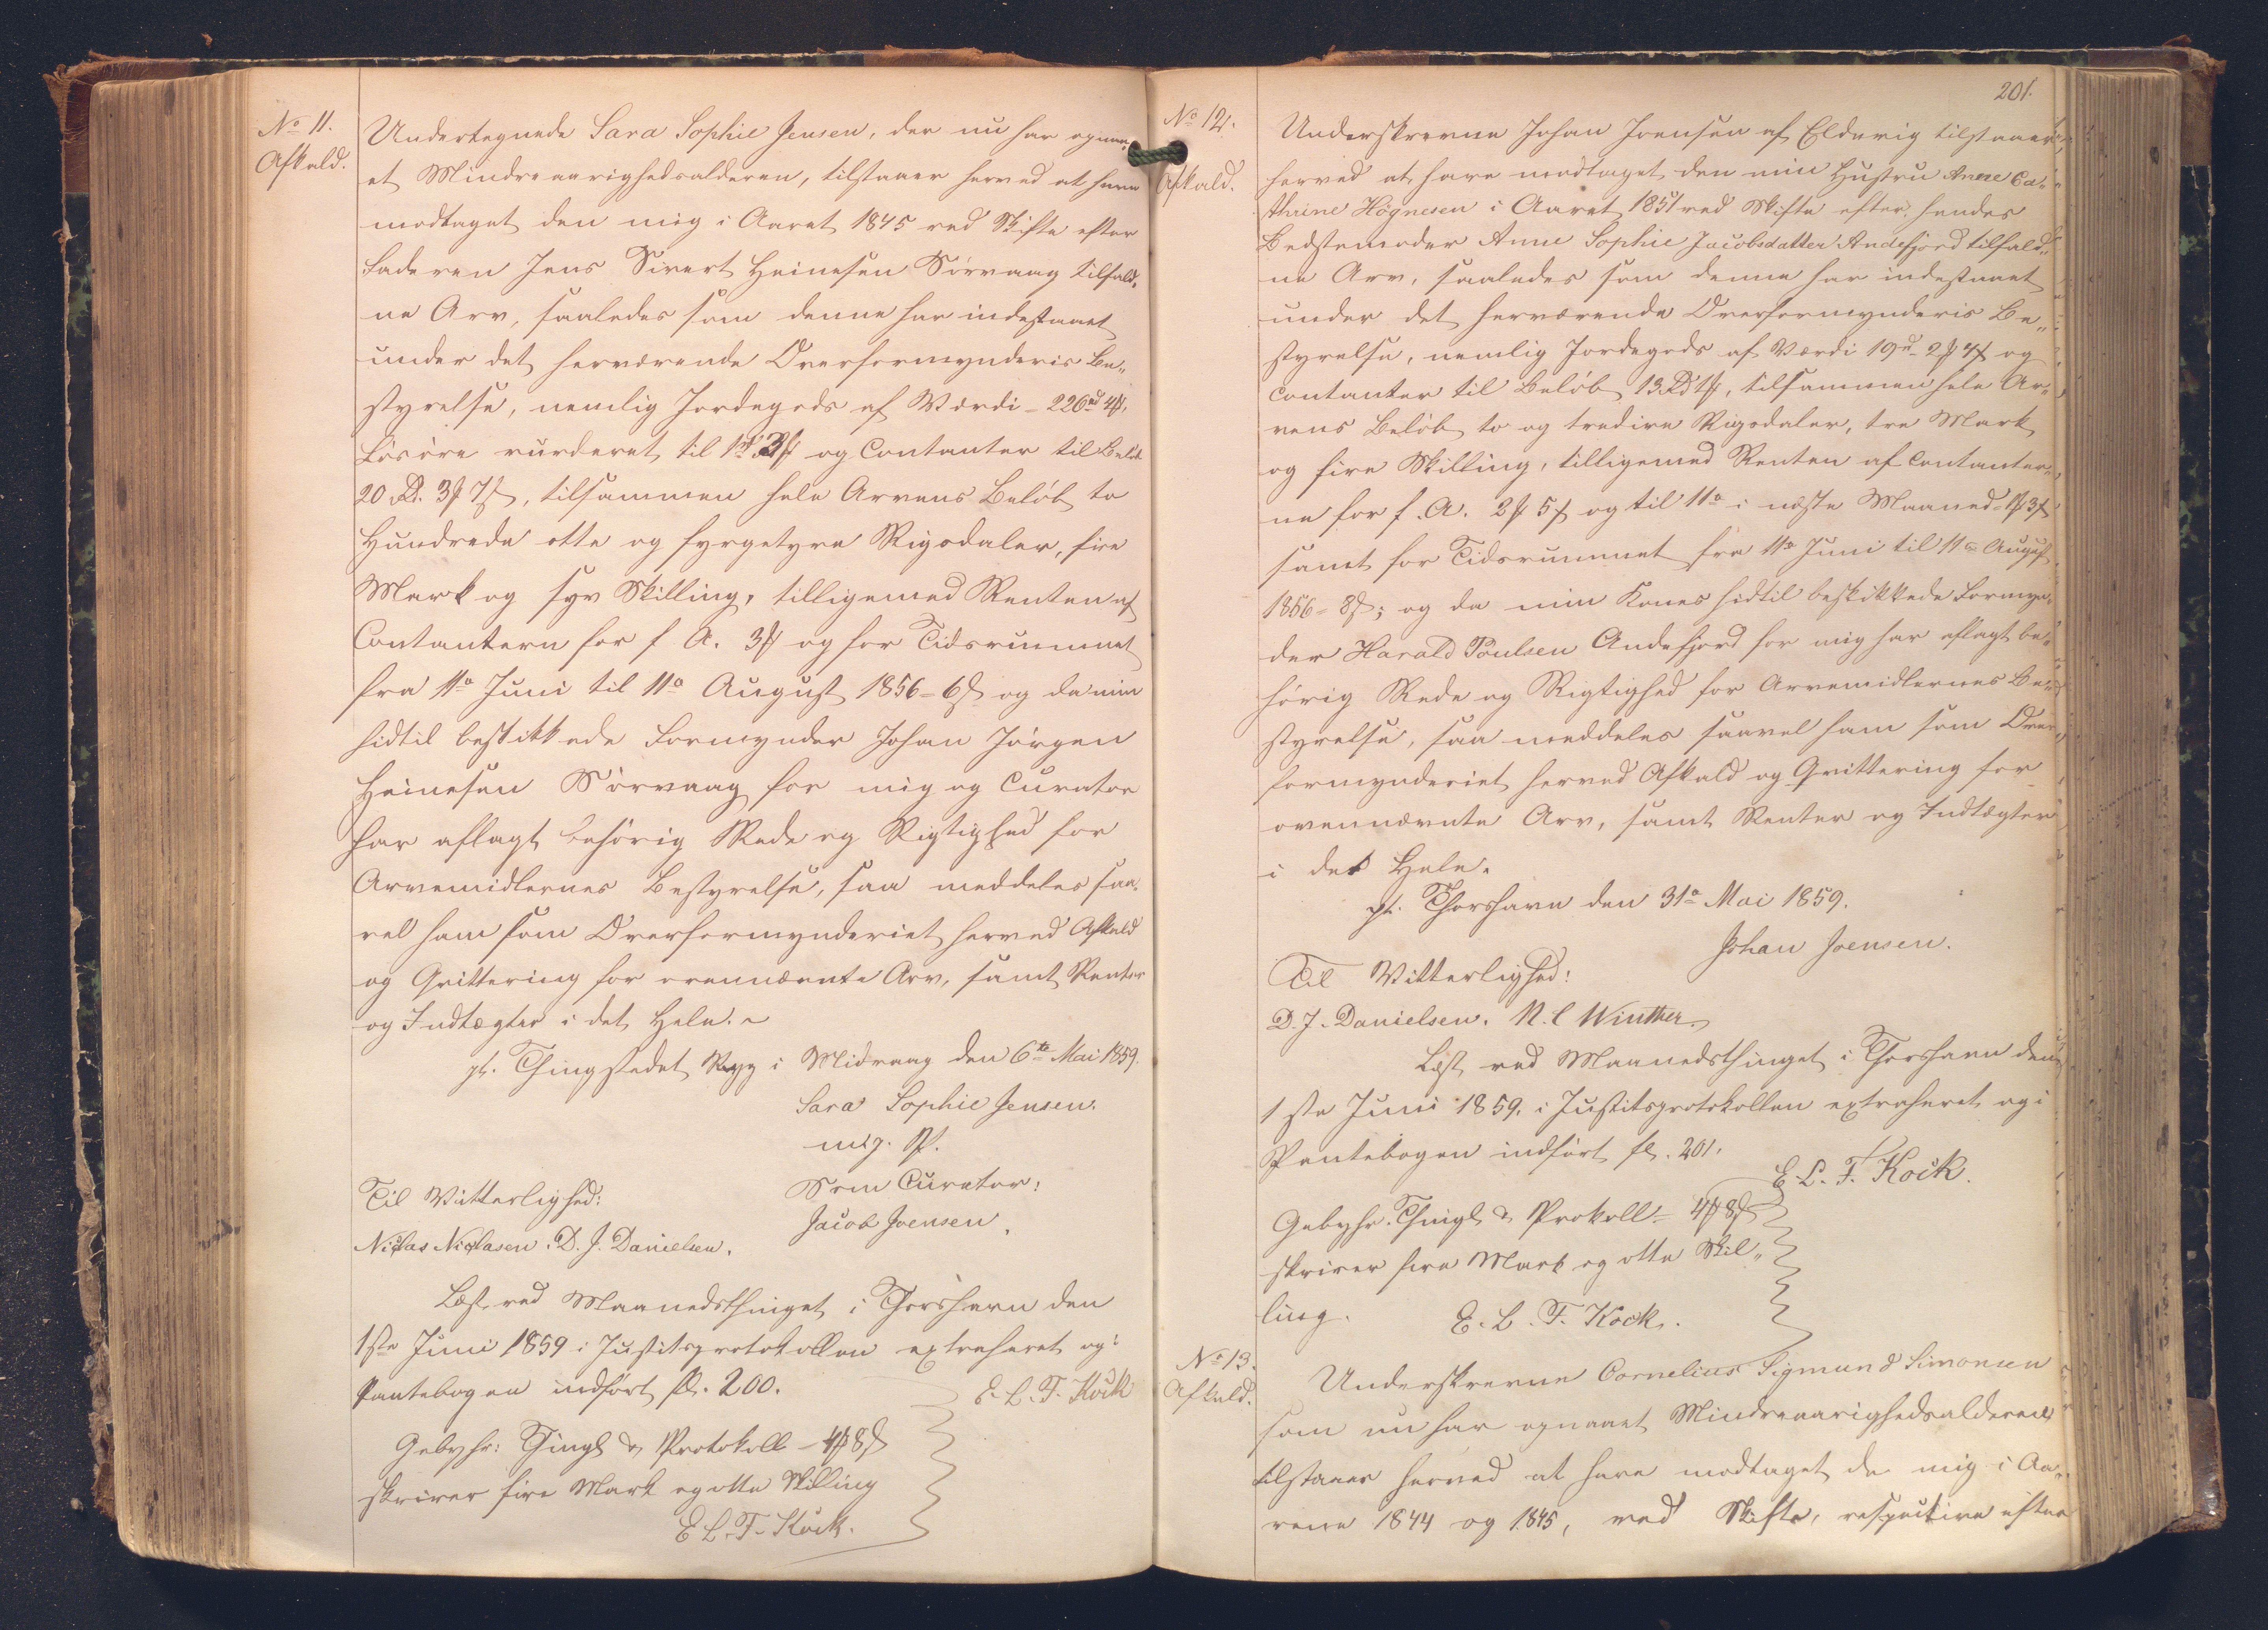 No 11.
Afkald.
Undertegnede Sara Sophie Jensen, der nu har opnaa„
et Mindreaarighedsalderen, tilstaaer herved at have
modtaget den mig i Aaret 1845 ved Skifte efter
Faderen Jens Sivert Heinesen Sörvaag tilfald„
ne Arv, saaledes som denne har indestaaet
under det herværende Overformynderis Be„
styrelse, nemlig Jordegods af Værdi - 226 rd 4 ꟙ,
Lösöre vurderet til 1 rd 3 ꟙ og Contanter til Beløb
20 Rd. 3 ꟙ 7 ß, tilsammen hele Arvens Belöb to
Hundrede otte og fyrgetyve Rigsdaler, fire
Mark og syv Skilling, tilligemed Renten af
Contantern for f. A. 3 ꟙ og for Tidsrummet
fra 11a Juni til 11a August 1856 = 6 ß og da min
hidtil beskikkede Formynder Johan Jörgen
Heinesen Sörvaag for mig og Curator
har aflagt behörig Rede og Rigtighed for
Arvemidlernes Bestyrelse, saa meddeles saa„
vel ham som Overformynderiet herved Afkald
og Qvittering for ovennævnte Arv, samt Renter
og Indtægter i det Hele. ~
pt. Thingstedet Ryg i Midvaag den 6te Mai 1859.
Sara Sophie Jensen.
m. p. P.
Til Vitterlighed:
Som Curator:
Jacob Joensen.
Niclas Niclasen. D. J. Danielsen.
Læst ved Maanedsthinget i Thorshavn den
1ste Juni 1859 i Justitsprotokollen extraheret og i
Pantebogen indfört fl. 200.
E. L. T. Kock
Gebyhr: Thingl & Protokoll - 4 ꟙ 8 ß
skriver fire Mark og otte Skilling
E. L. T. Kock.
201.
No 12.
Afkald.
Underskrevne Johan Joensen af Eldevig tilstaaer
herved at have modtaget den min Hustru Anne Ca„
thrine Högnesen i Aaret 1851 ved Skifte efter hendes
Bedstemoder Anne Sophie Jacobsdatter Andefjord tilfald„
ne Arv, saaledes som denne har indestaaet
under det herværende Overformynderis Be„
styrelse, nemlig Jordegods af Værdi 19 rd 2 ꟙ 4 ß og
Contanter til Belöb 13 Rd 1 ꟙ, tilsammen hele Ar„
vens Belöb to og tredive Rigsdaler, tre Mark
og fire Skilling, tilligemed Renten af Contanter„
ne for f. A. 2 ꟙ 5 ß og til 11a i næste Maaned 1 ꟙ 3 ß
samt for Tidsrummet fra 11a Juni til 11a August
1856 = 8 ß; og da min Kones hidtil beskikkede Formyn„
der Harald Poulsen Andefjord for mig har aflagt be„
hörig Rede og Rigtighed for Arvemidlernes Be„
styrelse, saa meddeles saavel ham som Over„
formynderiet herved Afkald og Qvittering for
ovennævnte Arv, samt Renter og Indtægter
i det Hele.
pt. Thorshavn den 31a Mai 1859.
Johan Joensen.
Til Vitterlighed:
D. J. Danielsen. N. C Winther.
Læst ved Maanedsthinget i Thorshavn den
1ste Juni 1859. i Justitsprotokollen extraheret og i
Pantebogen indfört fl. 201.
E. L. T. Kock.
Gebyhr. Thingl & Prokoll = 4 ꟙ 8 ß
skriver fire Mark og otte Skil„
ling.
E. L. T. Kock.
No 13.
Afkald.
Underskrevne Cornelius Sigmund Simonsen
som nu har opnaaet Mindreaarighedsalderen
tilstaaer herved at have modtaget de mig i Aa„
rene 1844 og 1845, ved Skifte, respective efter